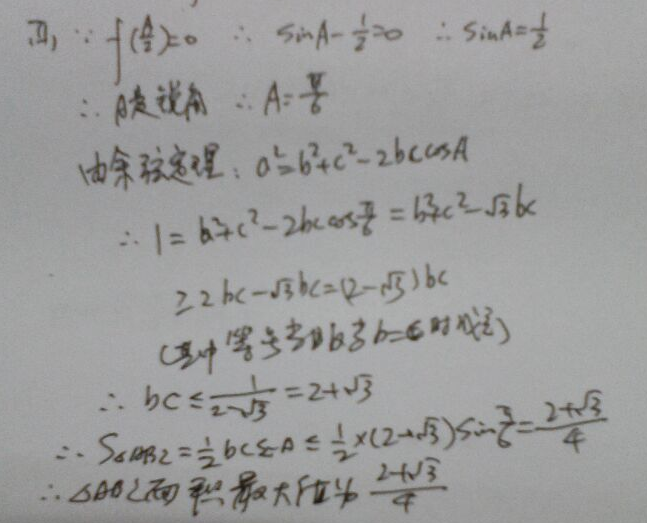 (Ⅱ) ∵ f(A/2)=0 ∴ sinA-1/2=0 ∴ sinA=1/2
∴ A是锐角 ∴ A=π/6
由余弦定理: a²=b²+c²-2bccosA
∴ 1=b²+c²-2bccosπ/6=b²+c²-√3bc
≥2bc-√3bc=(2-√3)bc
(其中等号当且仅当b=c时成立)
∴ bc≤1/(2-√3)=2+√3
∴ S△ABC=1/2bcsinA≤1/2×(2+√3)sinπ/6=(2+√3)/4
∴ △ABC面积最大值为(2+√3)/4